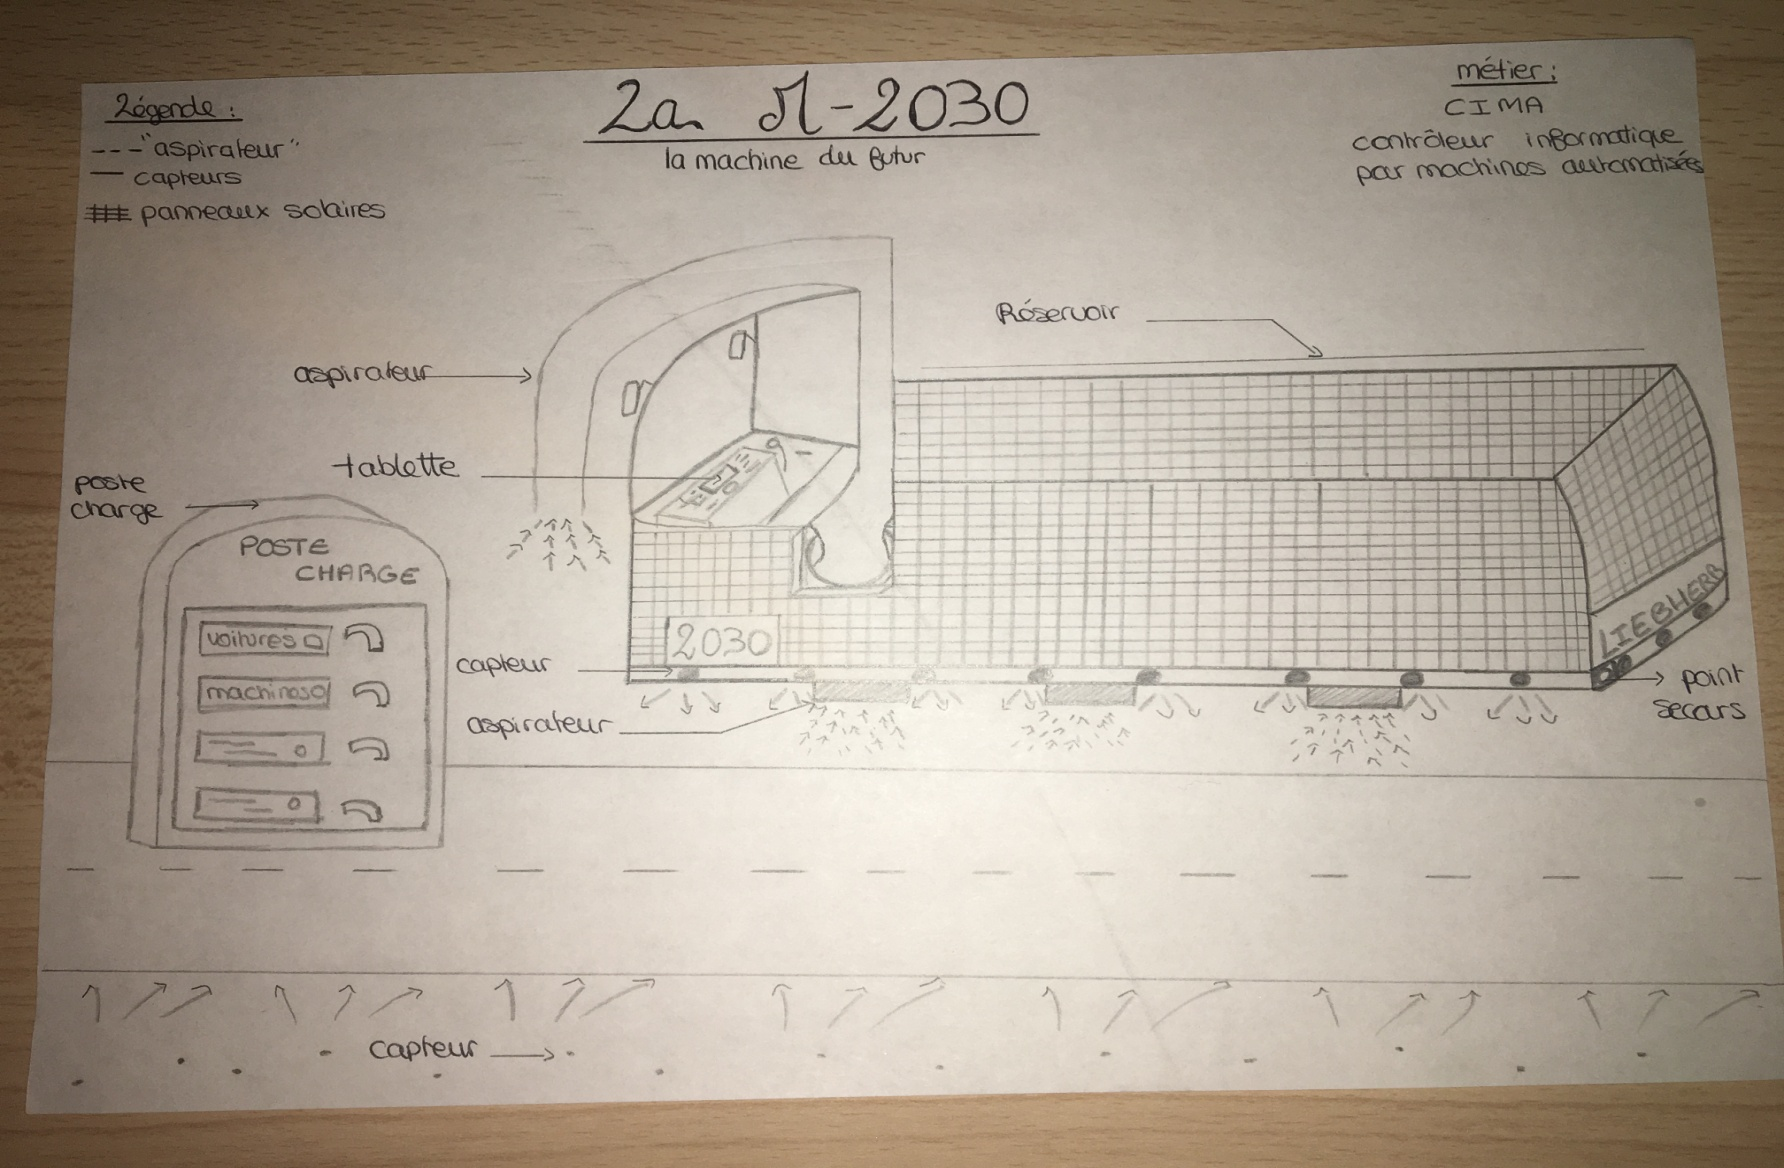 Légende :
"aspirateur"
capteurs
panneaux solaires
La M-2030
la machine du futur
métier :
CIMA
contrôleur informatique
par machines automatisées
Réservoir
aspirateur
tablette
poste
charge
POSTE
CHARGE
voitures
machines
2030
capteur
aspirateur
LIEBHERR
point
secours
capteur